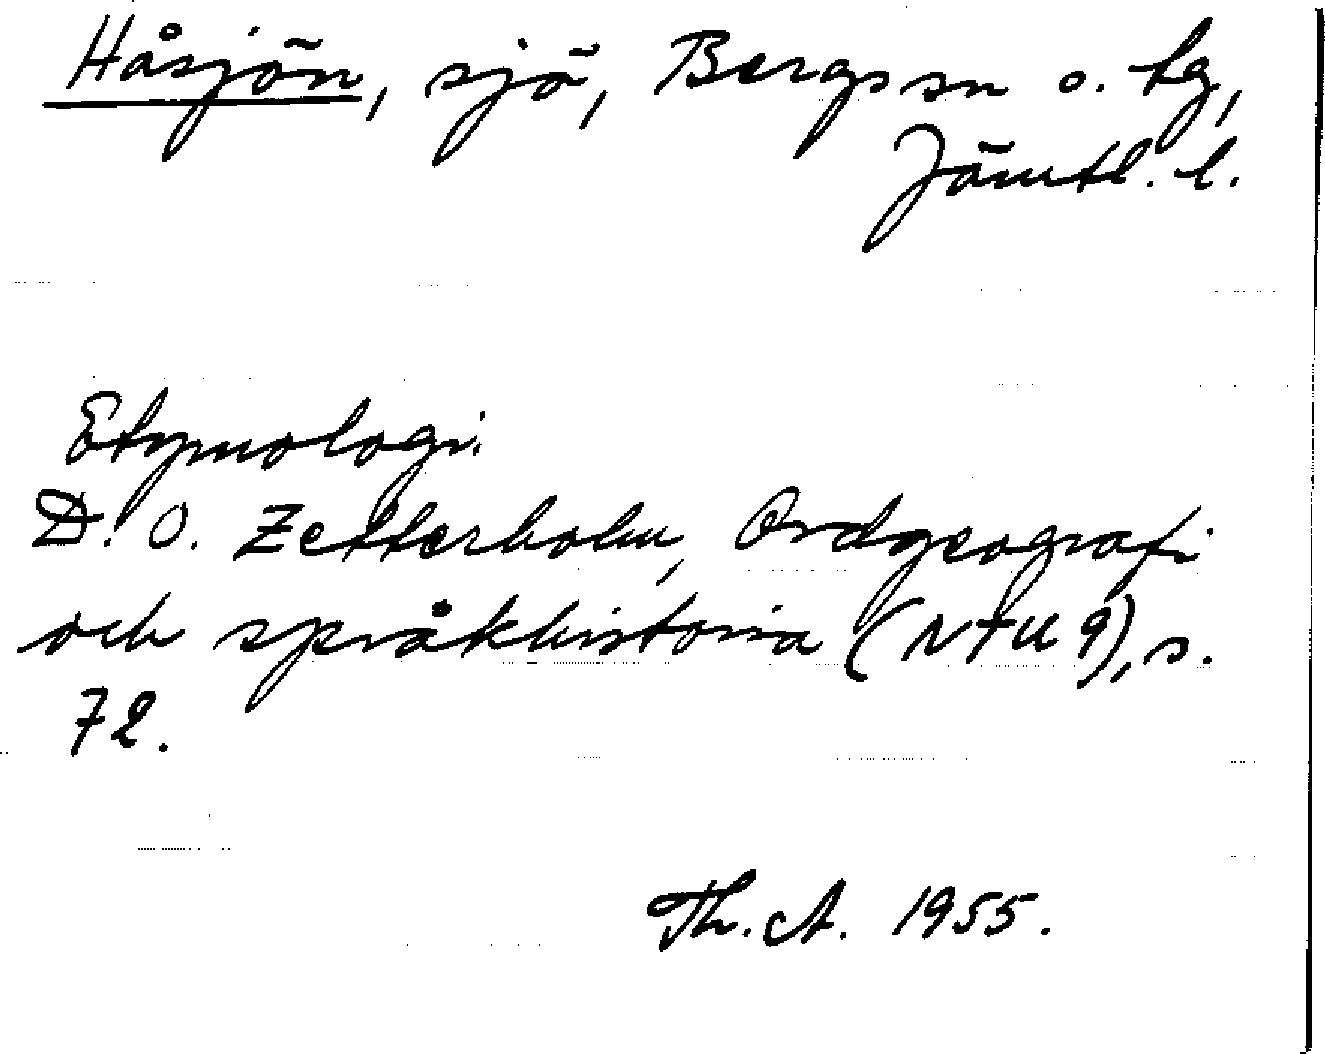 Håsjön, sjö, Bergs sn o. tg,
Jämtl. l.
Etymologi.
D. O. Zetterholm, Ordgeografi
och språkhistoria (NTU 9), s.
72.
Th. A. 1955.